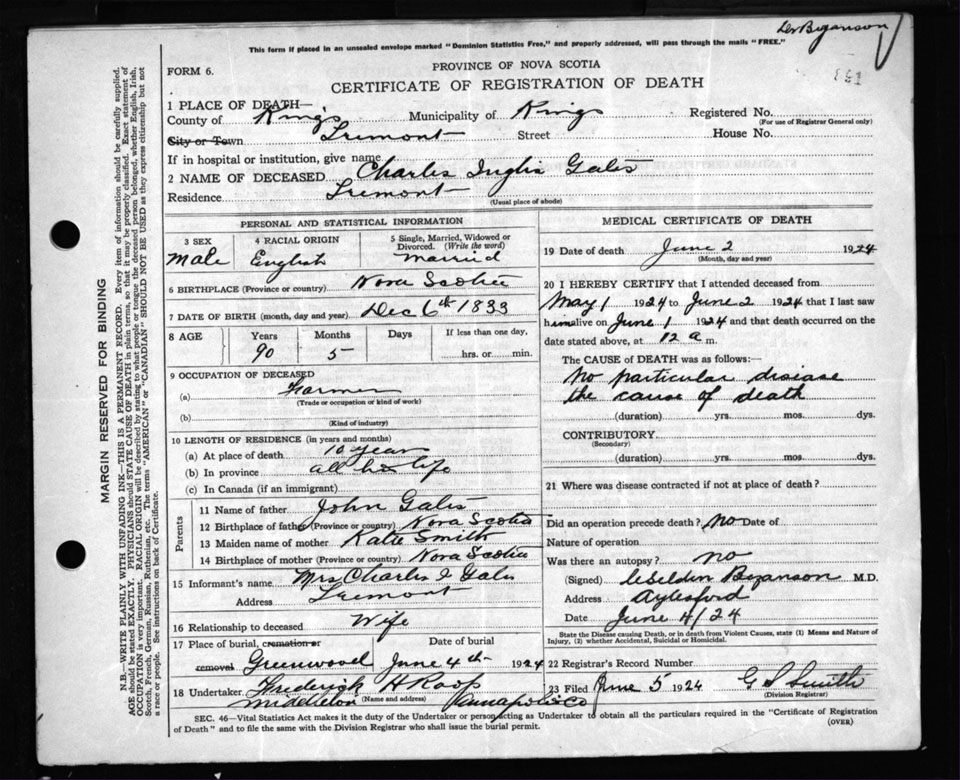 Dr Bezanson
This form if placed in an unsealed envelope marked "Dominion Statistics Free," and properly addressed, will pass through the mails "FREE."
FORM 6.
PROVINCE OF NOVA SCOTIA
CERTIFICATE OF REGISTRATION OF DEATH
1 PLACE OF DEATH—
County of Kings Municipality of Kings Registered No.
(For use of Registrar General only)
City or Town Tremont Street House No.
If in hospital or institution, give name
2 NAME OF DECEASED Charles Inglis Gates
Residence Tremont
(Usual place of abode)
PERSONAL AND STATISTICAL INFORMATION
3 SEX 4 RACIAL ORIGIN 5 Single, Married, Widowed or Divorced. (Write the word)
Male English Married
6 BIRTHPLACE (Province or country) Nova Scotia
7 DATE OF BIRTH (month, day and year) Dec 6th 1833
8 AGE Years Months Days If less than one day,
90 5 hrs. or min.
9 OCCUPATION OF DECEASED
(a) Farmer
(Trade or occupation or kind of work)
(b)
(Kind of industry)
10 LENGTH OF RESIDENCE (in years and months)
(a) At place of death 10 years
(b) In province all his life
(c) In Canada (if an immigrant)
Parents
11 Name of father John Gates
12 Birthplace of father (Province or country) Nova Scotia
13 Maiden name of mother Katie Smith
14 Birthplace of mother (Province or country) Nova Scotia
15 Informant's name Mrs Charles I Gates
Address Tremont
16 Relationship to deceased Wife
17 Place of burial, cremation or removal Greenwood Date of burial June 4th 1924
18 Undertaker Frederick H Roop
(Name and address)
Middleton Annapolis Co
MEDICAL CERTIFICATE OF DEATH
19 Date of death June 2 1924
(Month, day and year)
20 I HEREBY CERTIFY that I attended deceased from
May 1 1924 to June 2 1924 that I last saw
him alive on June 1 1924 and that death occurred on
date stated above, at 12 a m.
The CAUSE of DEATH was as follows:
No particular disease
the cause of death
(duration) yrs. mos. dys.
CONTRIBUTORY
(Secondary)
(duration) yrs. mos. dys.
21 Where was disease contracted if not at place of death?
Did an operation precede death? No Date of
Nature of operation
Was there an autopsy? no
(Signed) Bezanson M.D.
Address Aylesford
Date June 4/24
State the Disease causing Death, or in death from Violent Causes, state (1) Means and Nature of
Injury, (2) whether Accidental, Suicidal or Homicidal.
22 Registrar's Record Number
23 Filed June 5 1924 G S Smith
(Division Registrar)
SEC. 46—Vital Statistics Act makes it the duty of the Undertaker or person acting as Undertaker to obtain all the particulars required in the "Certificate of Registration
of Death" and to file the same with the Division Registrar who shall issue the burial permit.
(OVER)
MARGIN RESERVED FOR BINDING
N.B.—WRITE PLAINLY WITH UNFADING INK—THIS IS A PERMANENT RECORD. Every item of information should be carefully supplied.
AGE should be stated EXACTLY. PHYSICIANS should STATE CAUSE OF DEATH in plain terms, so that it may be properly classified. Exact statement of
OCCUPATION is very important. RACIAL ORIGIN will be described by stating to what people or tongue the deceased person belonged, whether English, Irish,
Scotch, French, German, Russian, Ruthenian, etc. The terms "AMERICAN" or "CANADIAN" SHOULD NOT BE USED as they express citizenship but not
a race or people. See instructions on back of Certificate.